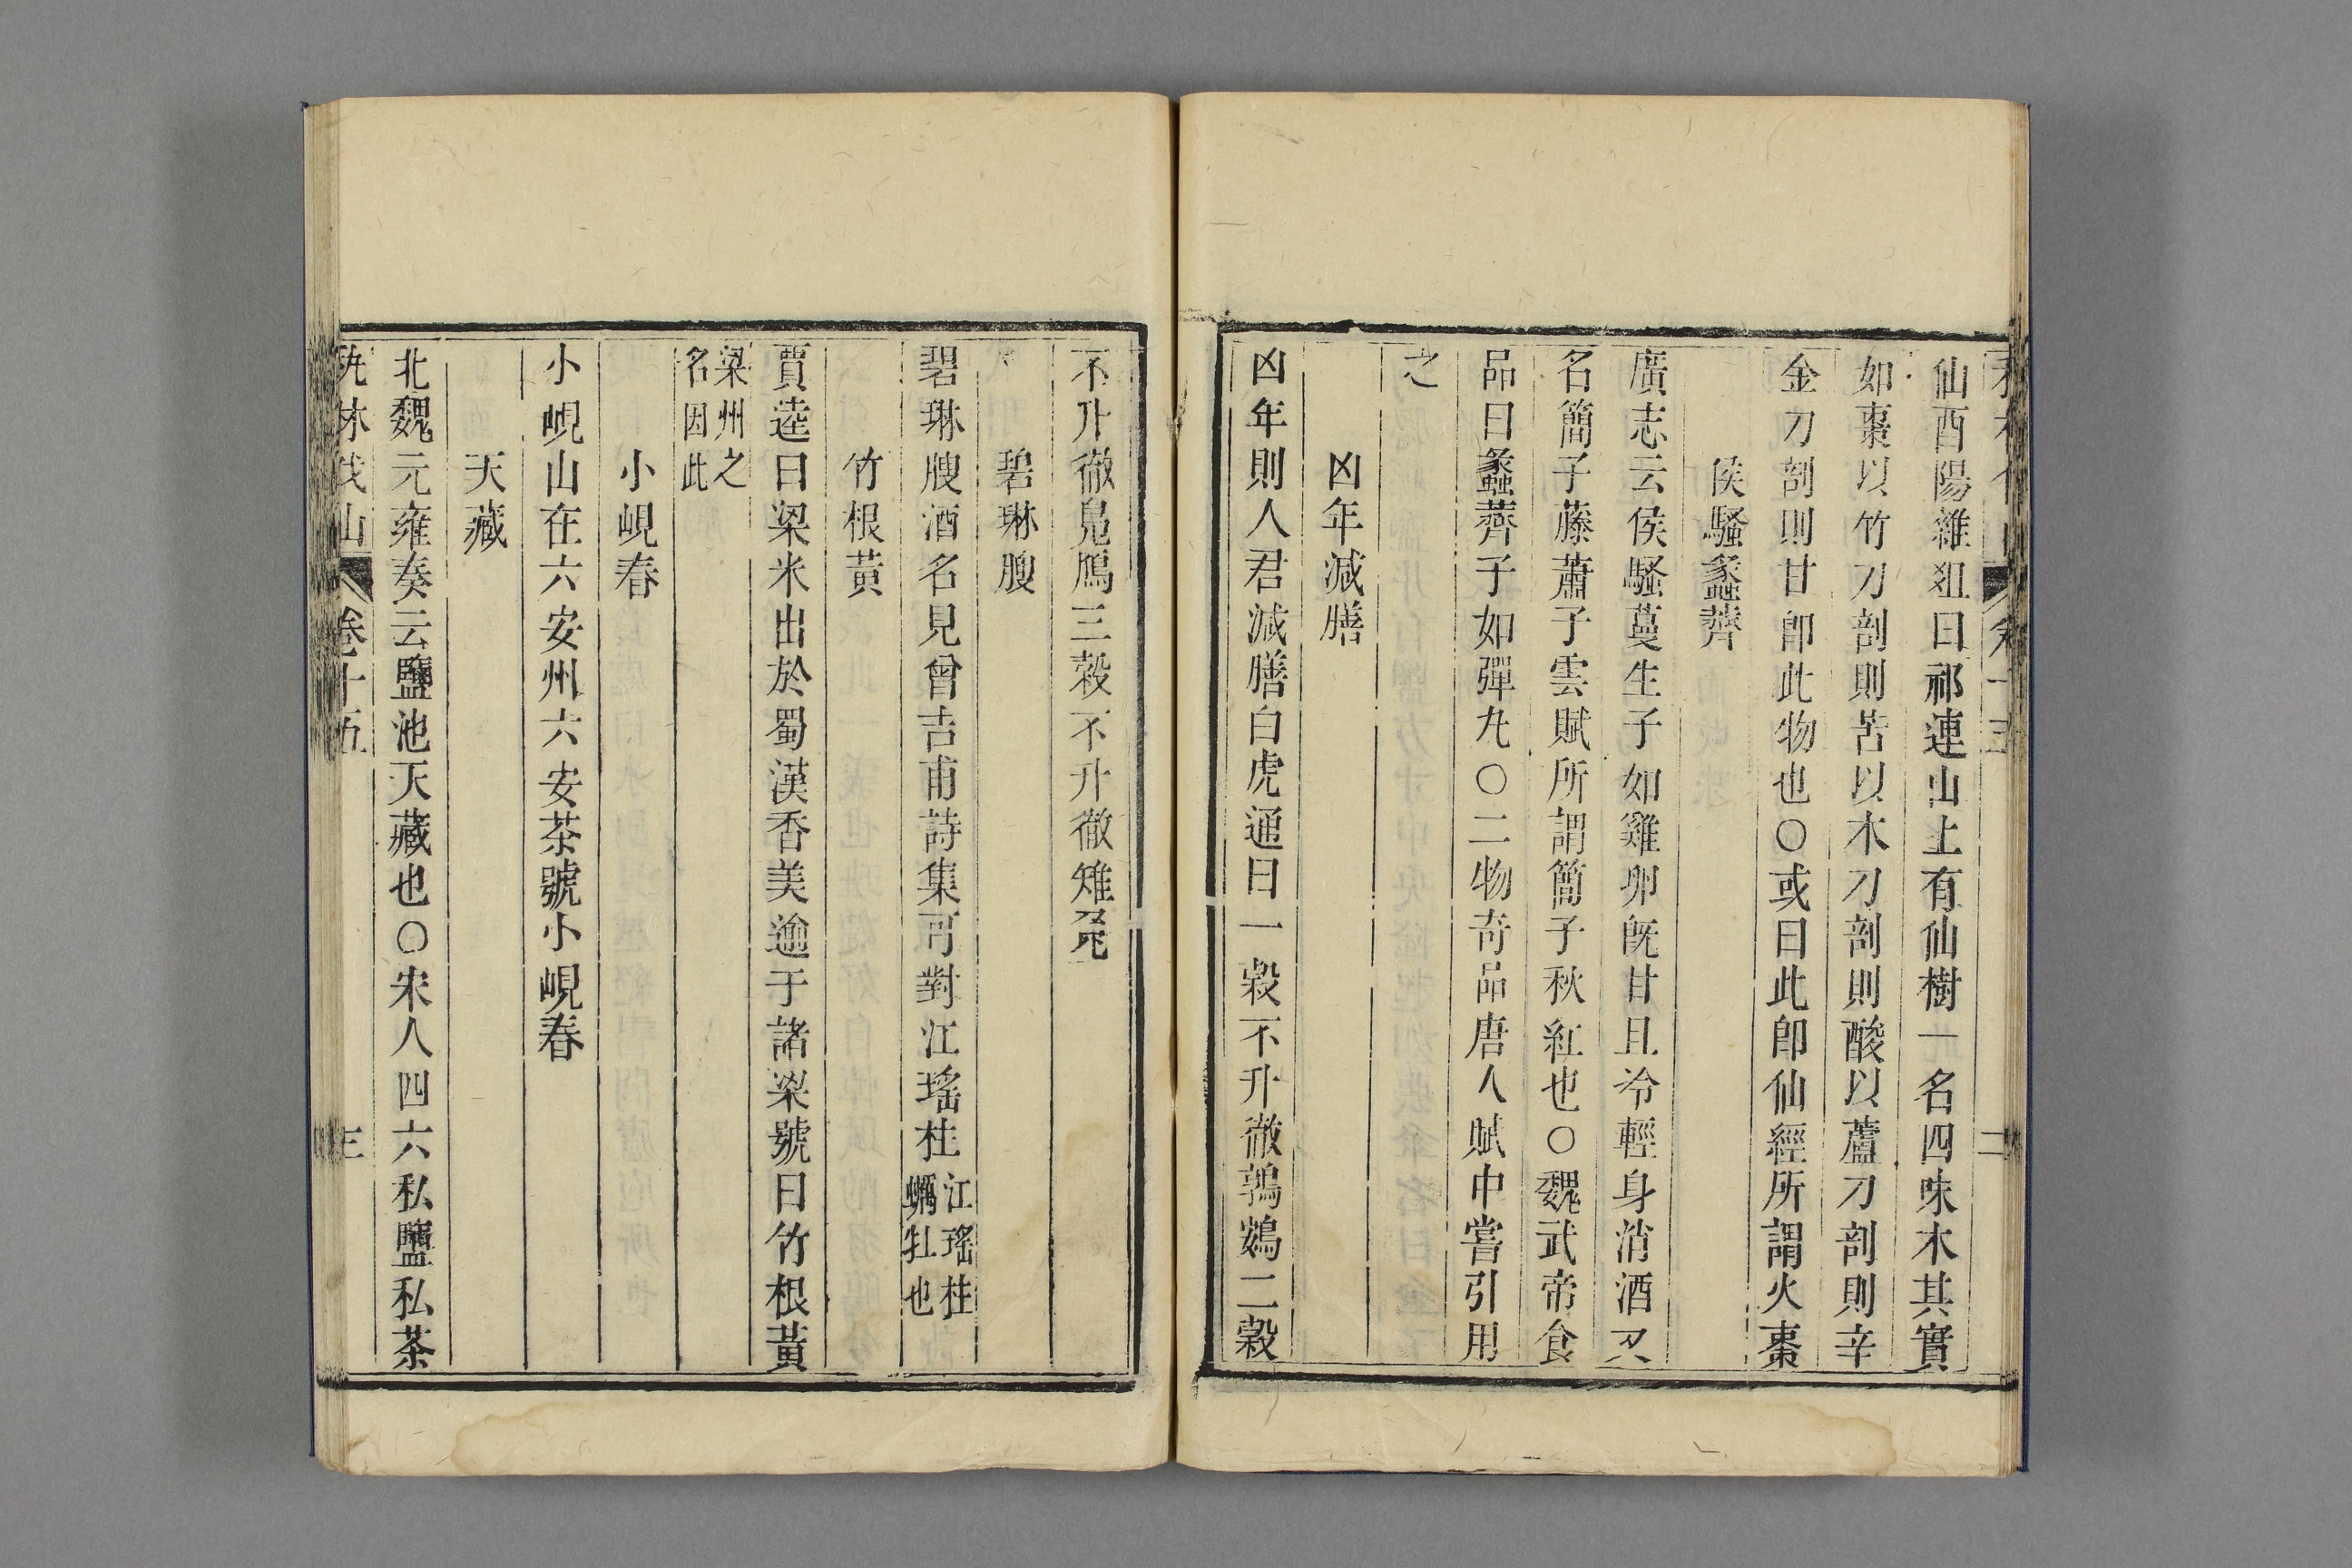 仙酉陽雜俎曰祁連山上有仙樹一名四味木其實
如棗以竹刀剖則苦以木刀剖則酸以蘆刀剖則辛
金刀剖則甘卽此物也○或曰此卽仙經所謂火棗
侯騷蠡薺
廣志云侯騷蔓生子如雞卵旣甘且冷輕身消酒又
名簡子藤蕭子雲賦所謂簡子秋紅也○魏武帝食
品曰蠡薺子如彈九○二物奇品唐人賦中嘗引用
之
凶年減膳
凶年則人君減膳白虎通曰一穀不升徹鶉鷃二穀
不升徹鳬鴈三穀不升徹雉兎
碧琳腴
碧琳腴酒名見曾吉甫詩集可對江瑤柱江瑤柱
蠣牡也
竹根黃
賈逵曰梁米出於蜀漢香美逾于諸梁號曰竹根黃
梁州之
名因此
小峴春
小峴山在六安州六安茶號小峴春
天藏
北魏元雍奏云鹽池天藏也○宋人四六私鹽私茶
卷十五
三